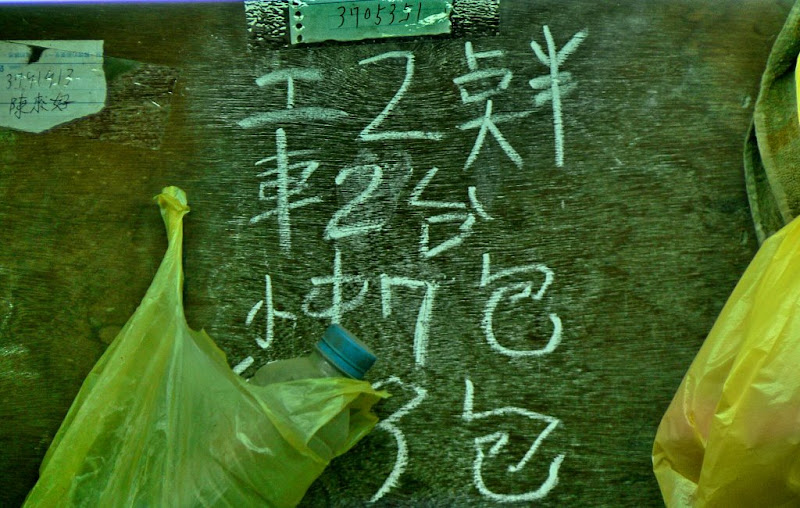 3705351
3741413
陳來好
工2点半
車2台
小中7包
3包